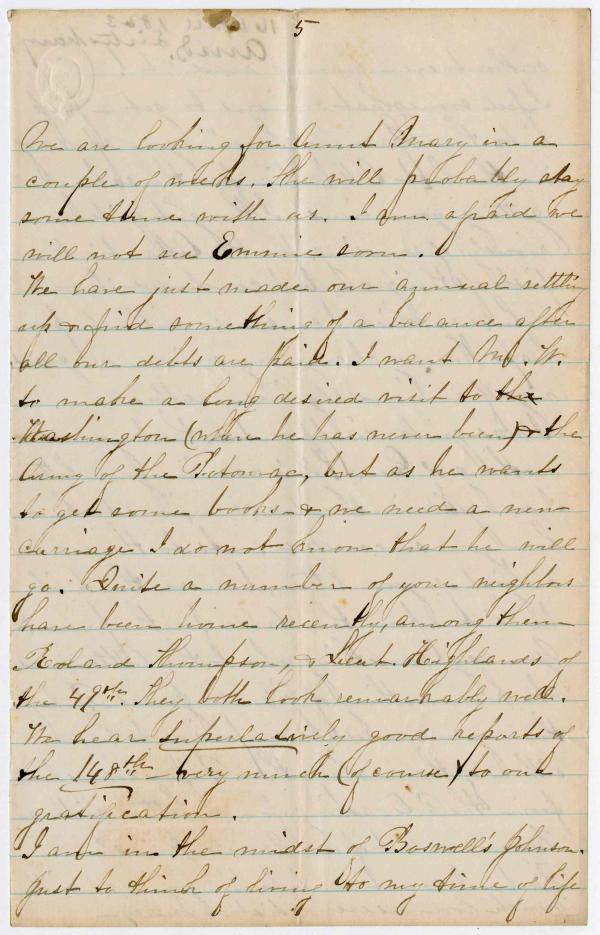 5
We are looking for Aunt Mary in a
couple of weeks. She will probably stay
some time with us. I am afraid we
will not see Emmie soon.
We have just made our annual settling
up & find something of a balance after
all our debts are paid. I want Mr. W.
to make a long desired visit to the
Washington (where he has never been) & the
Army of the Potomac, but as he wants
to get some books & we need a new
carriage I do not know that he will
go. Quite a number of your neighbors
have been home recently, among them
Roland Thompson, & Lieut. Highlands of
the 49th. They both look remarkably well.
We hear superlatively good reports of
the 148th - very much (of course) to our
gratification.
I am in the midst of Boswell's Johnson.
Just to think of living to my time of life